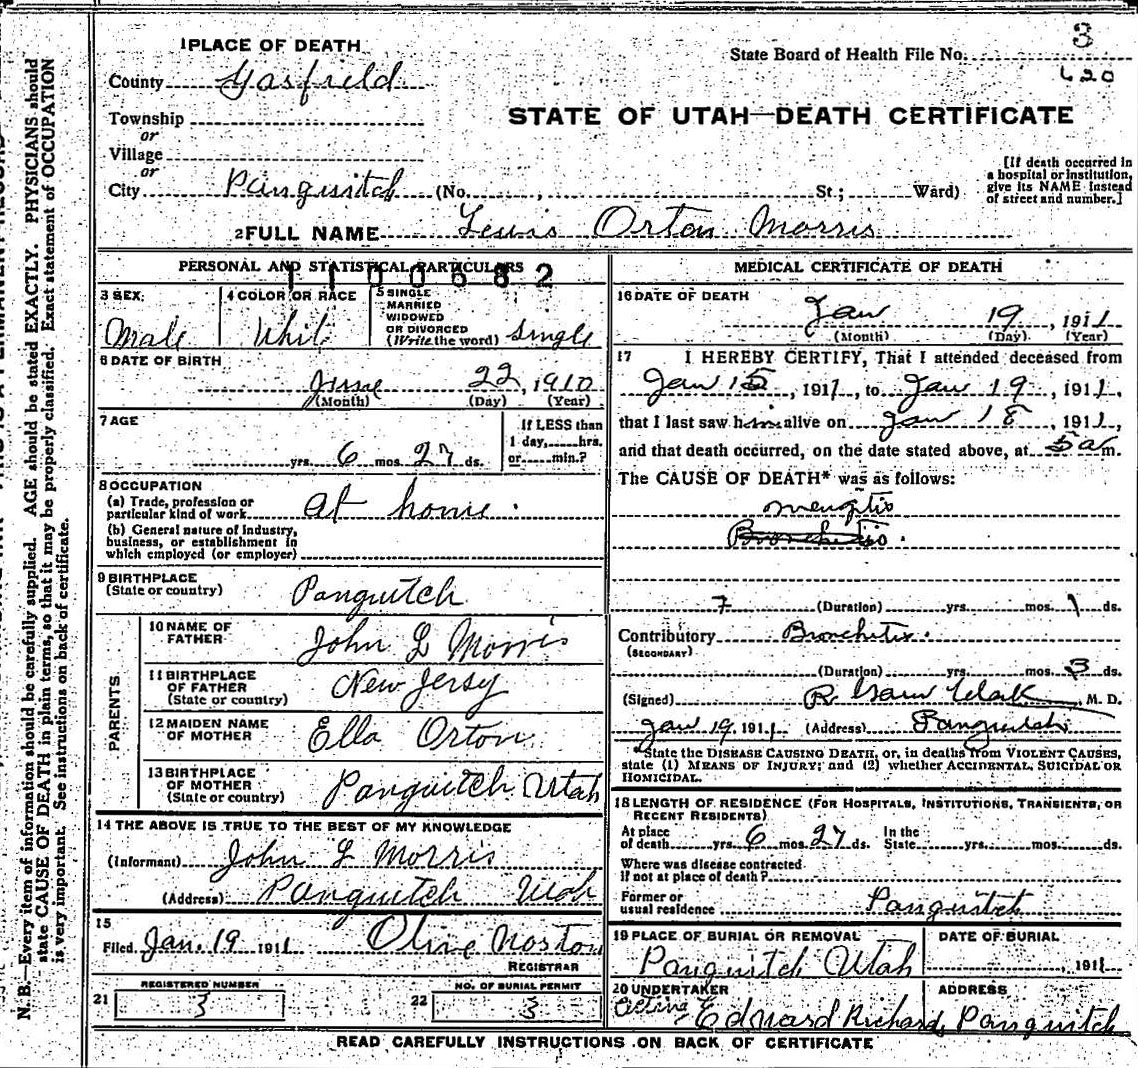 3
1 PLACE OF DEATH
State Board of Health File No.
620
County Garfield
STATE OF UTAH—DEATH CERTIFICATE
Township
or
Village
or
City Panguitch (No. , St.; Ward)
[If death occurred in
a hospital or institution,
give its NAME instead
of street and number.]
2 FULL NAME Lewis Orton Morris
PERSONAL AND STATISTICAL PARTICULARS
1100682
3 SEX
Male
4 COLOR OR RACE
Whit
5 SINGLE
MARRIED
WIDOWED
OR DIVORCED
(Write the word) Single
6 DATE OF BIRTH
June 22, 1910
(Month) (Day) (Year)
7 AGE
yrs. 6 mos. 27 ds.
If LESS than
1 day, hrs.
or min.?
8 OCCUPATION
(a) Trade, profession or
particular kind of work at home
(b) General nature of industry,
business, or establishment in
which employed (or employer)
9 BIRTHPLACE
(State or country) Panguitch
PARENTS
10 NAME OF
FATHER John L Morris
11 BIRTHPLACE
OF FATHER
(State or country) New Jersy
12 MAIDEN NAME
OF MOTHER Ella Orton
13 BIRTHPLACE
OF MOTHER
(State or country) Panguitch Utah
14 THE ABOVE IS TRUE TO THE BEST OF MY KNOWLEDGE
(Informant) John L Morris
(Address) Panguitch Utah
15
Filed Jan. 19 1911 Olive
REGISTRAR
REGISTERED NUMBER
21 3
NO. OF BURIAL PERMIT
22 3
MEDICAL CERTIFICATE OF DEATH
16 DATE OF DEATH
Jan 19, 1911
(Month) (Day) (Year)
17 I HEREBY CERTIFY, That I attended deceased from
Jan 15, 1911, to Jan 19, 1911,
that I last saw him alive on Jan 18, 1911,
and that death occurred, on the date stated above, at 5 a m.
The CAUSE OF DEATH* was as follows:
Bronchitis.
7 (Duration) yrs. mos. 1 ds.
Contributory Bronchitis.
(SECONDARY)
(Duration) yrs. mos. 3 ds.
(Signed) R. Clark, M. D.
Jan 19, 1911 (Address) Panguitch
*State the DISEASE CAUSING DEATH, or, in deaths from VIOLENT CAUSES,
state (1) MEANS OF INJURY; and (2) whether ACCIDENTAL, SUICIDAL OR
HOMICIDAL.
18 LENGTH OF RESIDENCE (FOR HOSPITALS, INSTITUTIONS, TRANSIENTS, OR
RECENT RESIDENTS)
At place
of death yrs. 6 mos. 27 ds. In the
State yrs. mos. ds.
Where was disease contracted
if not at place of death?
Former or
usual residence Panguitch
19 PLACE OF BURIAL OR REMOVAL
Panguitch Utah
DATE OF BURIAL
, 1911
20 UNDERTAKER
Acting Edward Richard,
ADDRESS
Panguitch
READ CAREFULLY INSTRUCTIONS ON BACK OF CERTIFICATE
N. B.—Every item of information should be carefully supplied. AGE should be stated EXACTLY. PHYSICIANS should
state CAUSE OF DEATH in plain terms, so that it may be properly classified. Exact statement of OCCUPATION
is very important. See instructions on back of certificate.